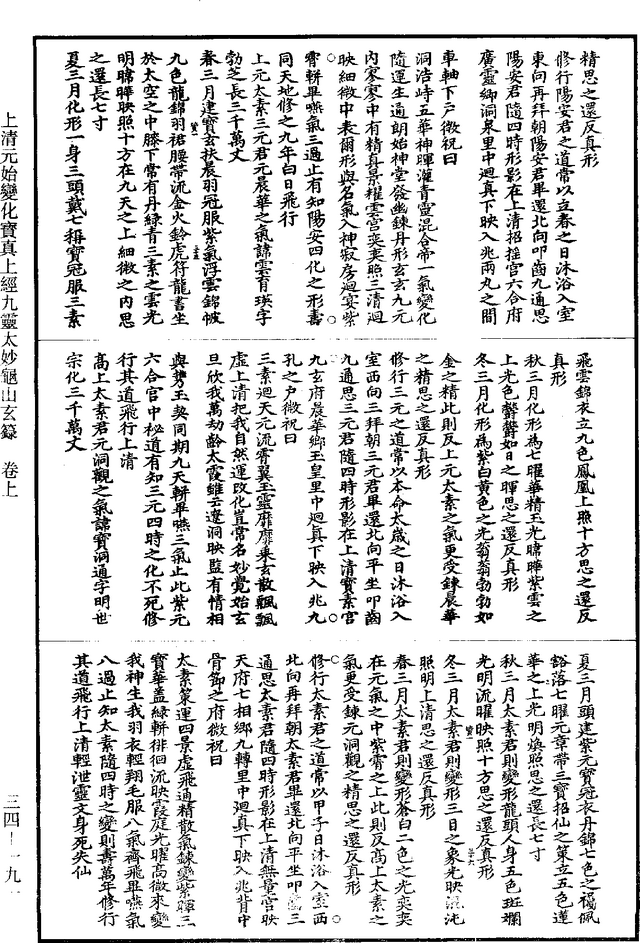 精思之還反真形
修行陽安君之道常以立春之日沐浴入室
東向再拜朝陽安君畢還北向叩齒九通思
陽安君隨四時形影在上清招搖宮六合府
廣靈鄉洞泉里中迴真下映入兆兩丸之間
車軸下戶微祝曰
洞浩峙五華神暉灌青靈混合帝一氣變化
隨運生過朗始神堂發幽鍊丹形玄玄九元
內寥寥中有精真景耀雲宮奕奕照三清迴
映細微中表爾形與名氣入神寂房迴宴紫
霄輧畢嚥氣三過止有知陽安四化之形壽
同天地修之九年白日飛行
上元太素三元君元晨華之氣諱雲育瑛字
勃芝長三千萬丈
春三月建寶玄扶晨羽冠服紫氣浮雲錦帔
九色龍錦羽裙腰帶流金火鈴虎符龍書坐
於太空之中膝下常有丹綠青三素之雲光
明暐曄映照十方在九天之上細微之內思
之還長七寸
夏三月化形一身三頭戴七稱寶冠服三素
飛雲錦衣立九色鳳凰上照十方思之還反
真形
秋三月化形為七曜華精玉光暐曄紫雲之
上光色鬱鬱如日之暉思之還反真形
冬三月化形為紫白黃色之光蓊蓊勃勃如
金之精此則反上元太素之氣更受鍊晨華
之精思之還反真形
修行三元之道常以本命太歲之日沐浴入
室西向三拜朝三元君畢還北向平坐叩齒
九通思三元君隨四時形影在上清寶素宮
九玄府晨華鄉玉皇里中迴真下映入兆九
孔之戶微祝曰
三素迴天元流霄翼三靈靡靡乘玄散飄飄
虛上清把我自然運改化豈常名妙覺始玄
旦欣我萬劫齡太霞雖云遼洞映監有情相
與勢玉契同期九天輧畢嚥三氣止此紫元
六合宮中祕道有知三元四時之化不死修
行其道飛行上清
高上太素君元洞觀之氣諱寶洞通字明世
宗化三千萬丈
夏三月頭建紫元寶冠衣丹錦七色之襡佩
豁落七曜元章帶三寶招仙之策立五色蓮
華之上光明煥照思之還長七寸
秋三月太素君則變形龍頭人身五色斑斕
光明流曜映照十方思之還反真形
冬三月太素君則變形三日之象光映混沌
照明上清思之還反真形
春三月太素君則變形蒼白二色之光奕奕
在元氣之中紫霄之上此則反高上太素之
氣更受鍊元洞觀之精思之還反真形
修行太素君之道常以甲子日沐浴入室西
北向再拜朝太素君畢還北向平坐叩齒三
通思太素君隨四時形影在上清無量宮映
天府七相鄉九轉里中迴真下映入兆背中
骨節之府微祝曰
太素策運四景虛飛通精散氣鍊變紫暉三
寶華蓋綠輧徘徊流映霞庭光曜高微來變
我神生我羽衣輕翔毛服八氣齊飛畢嚥氣
八過止知太素隨四時之變則壽萬年修行
其道飛行上清輕泄靈文身死失仙
上清元始變化寶真上經九靈太妙龜山玄籙 卷上
三四-一九一